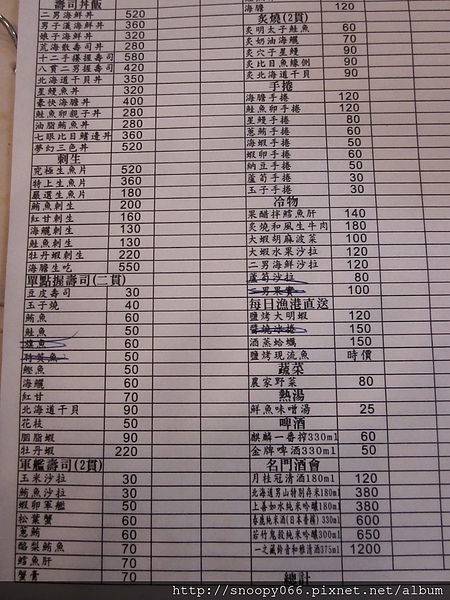 壽司丼飯
二男海鮮丼 520
男子漢海鮮丼 360
娘子海鮮丼 320
荒海散壽司丼 280
十二手捲握壽司 580
八貫二男握壽司 420
北海道干貝丼 350
星鰻魚丼 320
豪快海膽丼 400
鮭魚卵親子丼 280
油脂鮪魚丼 280
七眼比目鰭邊丼 360
夢幻三色丼 520
刺生
究極生魚片 520
特上生魚片 360
嚴選生魚片 180
鮪魚刺生 200
紅甘刺生 160
海鱺刺生 130
鮭魚刺生 130
牡丹蝦刺生 220
海膽生吃 550
單點握壽司(二貫)
豆皮壽司 30
玉子燒 40
鮪魚 60
鮭魚 50
旗魚 50
50
鰹魚 50
海鱺 60
紅甘 70
北海道干貝 90
花枝 50
胭脂蝦 90
牡丹蝦 220
軍艦壽司(2貫)
玉米沙拉 30
鮪魚沙拉 30
蝦卵軍艦 50
松葉蟹 60
蔥鮪 60
酪梨鮪魚 70
鱈魚肝 70
蟹膏 70
海膽 120
炙燒(2貫)
炙明太子鮭魚 60
炙奶油海鱺 70
炙穴子星鰻 90
炙比目魚緣側 90
炙北海道干貝 90
手捲
海膽手捲 120
鮭魚卵手捲 120
星鰻手捲 80
蔥鮪手捲 60
海蝦手捲 50
蝦卵手捲 50
納豆手捲 50
蘆筍手捲 30
玉子手捲 30
冷物
果醋拌鱈魚肝 140
炙燒和風生牛肉 180
大蝦胡麻波菜 100
大蝦水果沙拉 120
二男海鮮沙拉 120
蘆筍沙拉 80
二男果實 100
每日漁港直送
鹽烤大明蝦 120
醬燒冰捲 150
酒蒸蛤蠣 150
鹽烤現流魚 時價
蔬菜
農家野菜 80
熱湯
鮮魚味噌湯 25
啤酒
麒麟一番搾330ml 60
金牌啤酒330ml 50
名門酒會
月桂冠清酒180ml 120
北海道男山特別本釀180ml 380
上善如水純米吟釀180ml 380
春鹿純米酒(日本香檳)330ml 600
若竹鬼殺純米吟釀300ml 650
一之藏鈴音和種清酒375ml 1200
總計
http://snoopy066.pixnet.net/album